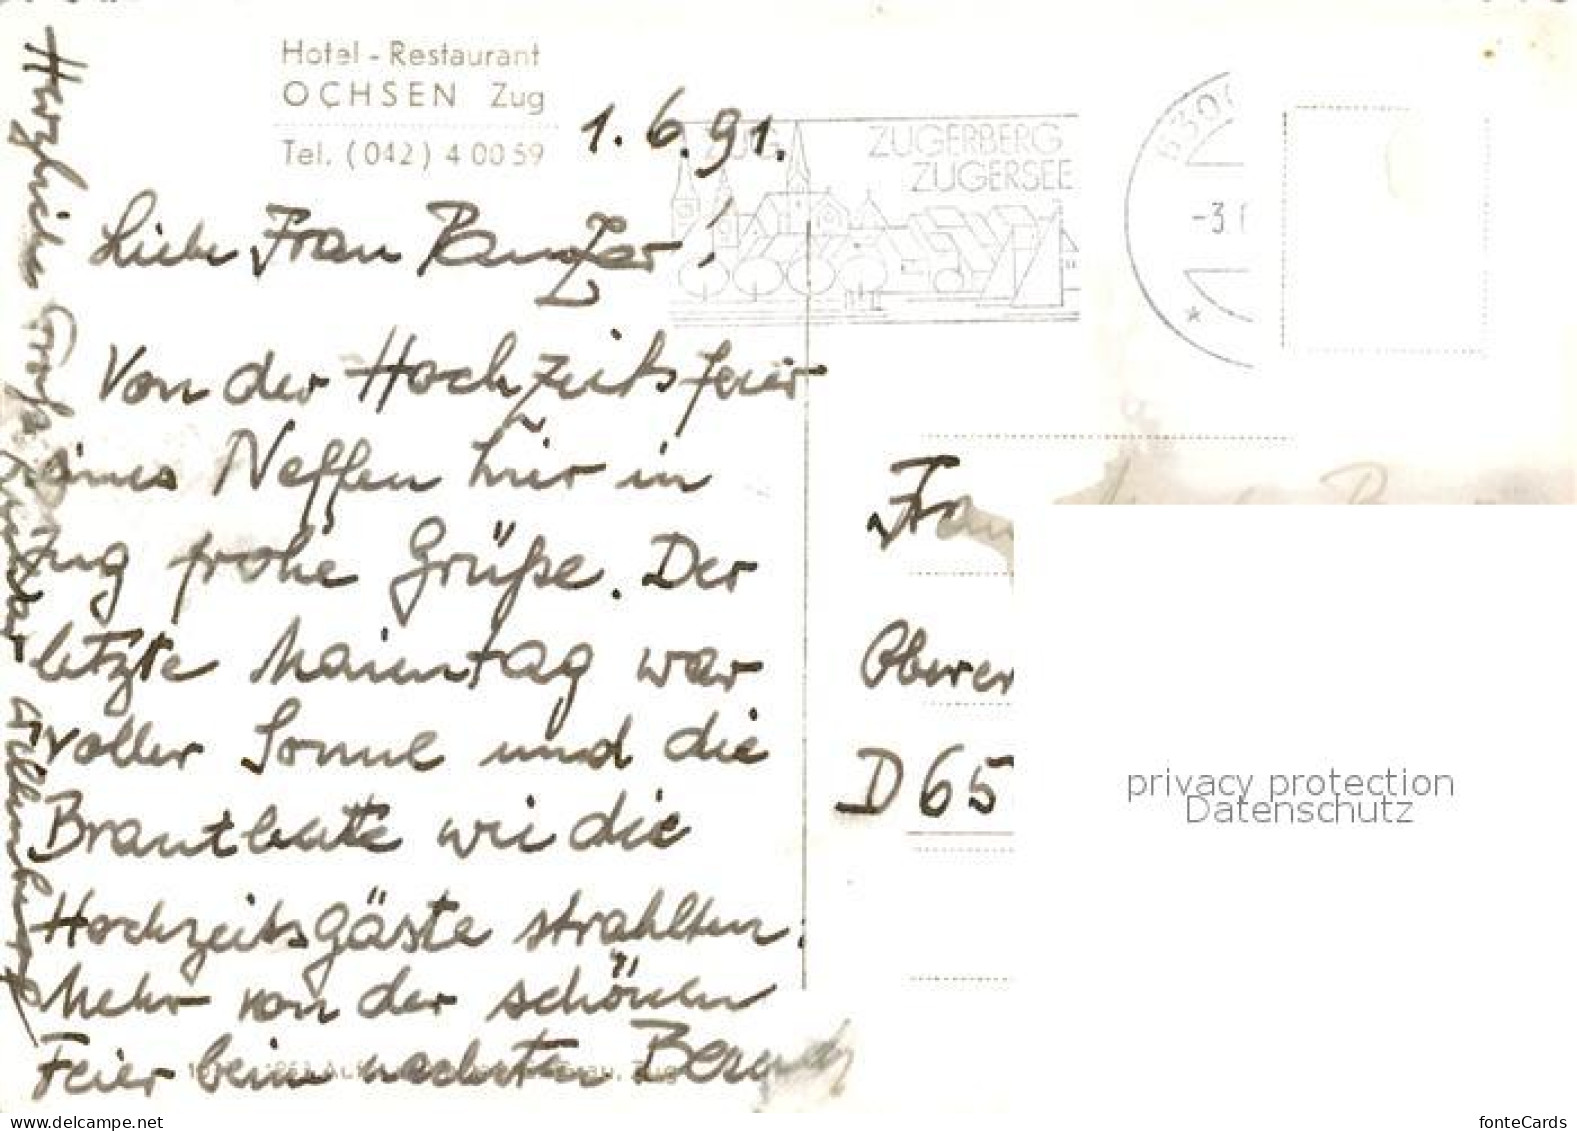 Hotel - Restaurant
OCHSEN Zug
Tel. (042) 4 00 59
1.6.91.
ZUG
ZUGERBERG
ZUGERSEE
-3
Liebe Frau Panzer!
Von der Hochzeitsfeier
eines Neffen hier in
Zug frohe Grüße. Der
letzte Maientag war
voller Sonne und die
Brautleute wie die
Hochzeitsgäste strahlten.
Mehr von der schönen
Feier beim nächsten Besuch
Herzliche Grüße
Frau
Oberer
D 65
privacy protection
Datenschutz
www.delcampe.net
fonteCards